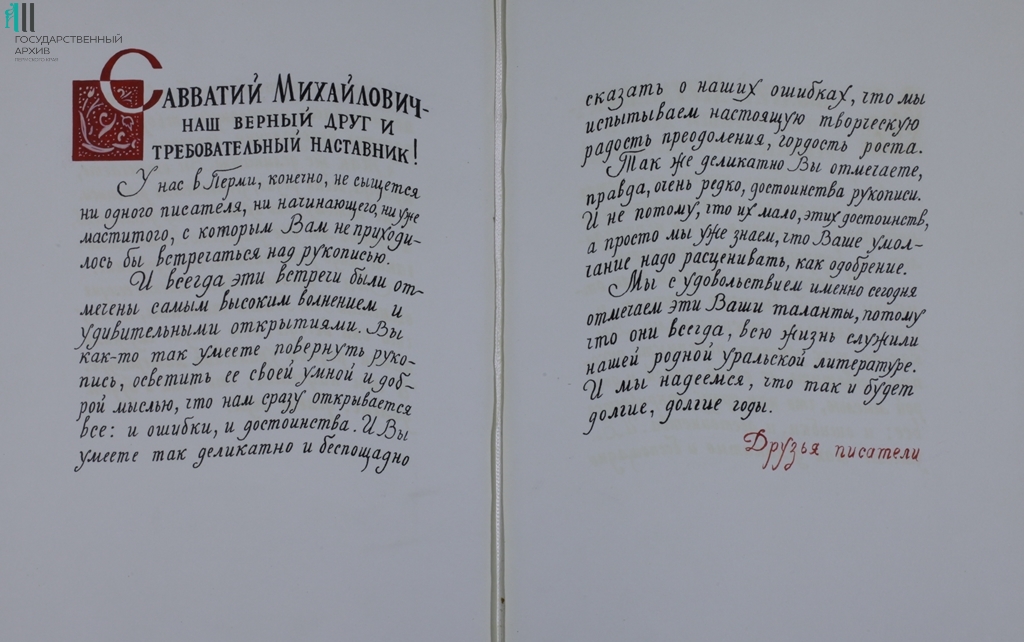 ГОСУДАРСТВЕННЫЙ
АРХИВ
ПЕРМСКОГО КРАЯ
САВВАТИЙ МИХАЙЛОВИЧ-
НАШ ВЕРНЫЙ ДРУГ И
ТРЕБОВАТЕЛЬНЫЙ НАСТАВНИК!
У нас в Перми, конечно, не сыщется
ни одного писателя, ни начинающего, ни уже
маститого, с которым Вам не приходи-
лось бы встречаться над рукописью.
И всегда эти встречи были от-
мечены самым высоким волнением и
удивительными открытиями. Вы
как-то так умеете повернуть руко-
пись, осветить ее своей умной и доб-
рой мыслью, что нам сразу открывается
все: и ошибки, и достоинства. И Вы
умеете так деликатно и беспощадно
сказать о наших ошибках, что мы
испытываем настоящую творческую
радость преодоления, гордость роста.
Так же деликатно Вы отмечаете,
правда, очень редко, достоинства рукописи.
И не потому, что их мало, этих достоинств,
а просто мы уже знаем, что Ваше умол-
чание надо расценивать, как одобрение.
Мы с удовольствием именно сегодня
отмечаем эти Ваши таланты, потому
что они всегда, всю жизнь служили
нашей родной уральской литературе.
И мы надеемся, что так и будет
долгие, долгие годы.
Друзья писатели